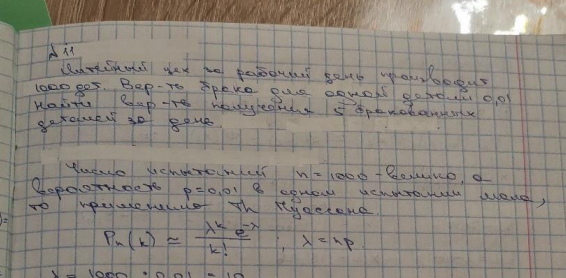 №11
Литейный цех за рабочий день производит
1000 дет. Вер-ть брака для одной детали 0,01
Найти вер-ть получения 5 бракованных
деталей за день.
Число испытаний n = 1000 - велико, а
вероятность p = 0,01 в одном испытании мала,
то применима Th Пуассона.
Pn(k) ≈ λ^k e^-λ / k! ; λ = np.
λ = 1000 · 0,01 = 10